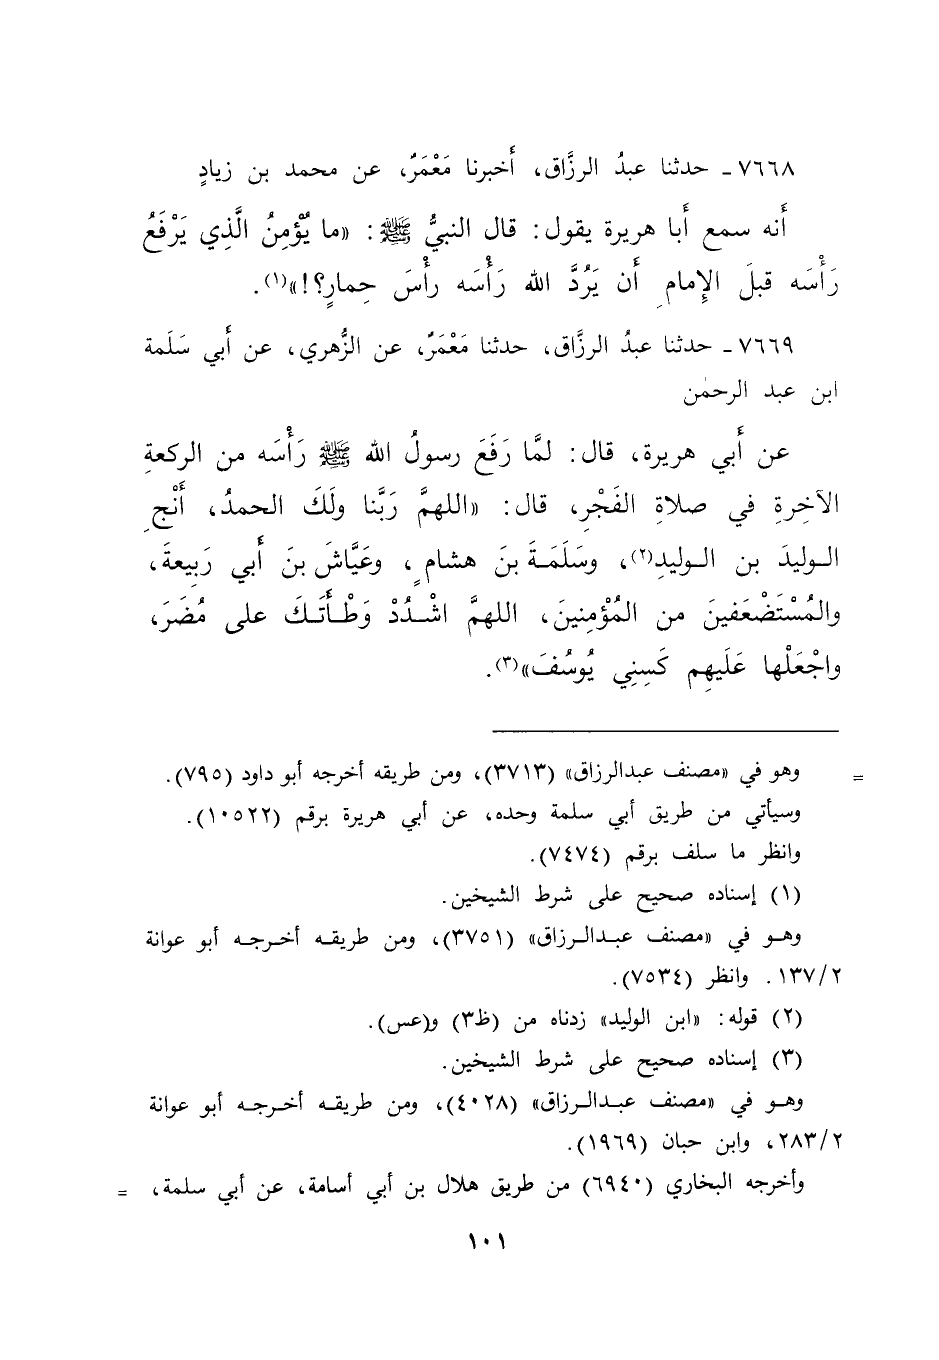 ٧٦٦٨ ـ حدثنا عبدُ الرزَّاق، أَخبرنا مَعْمَرٌ، عن محمد بن زيادٍ
أَنه سمع أَبا هريرة يقول: قال النبيُّ ﷺ: «ما يُؤْمِنُ الَّذِي يَرْفَعُ
رَأْسَه قبلَ الإِمامِ أَن يَرُدَّ الله رَأْسَه رأْسَ حِمارٍ؟!»(١).
٧٦٦٩ ـ حدثنا عبدُ الرزَّاق، حدثنا مَعْمَرٌ، عن الزُّهري، عن أَبي سَلَمة
ابن عبد الرحمٰن
عن أَبي هريرة، قال: لمَّا رَفَعَ رسولُ الله ﷺ رَأْسَه من الركعةِ
الآخِرةِ في صلاةِ الفَجْرِ، قال: «اللهمَّ رَبَّنا ولَكَ الحمدُ، أَنْجِ
الـوليدَ بن الـوليدِ(٢)، وسَلَمَـةَ بنَ هشامٍ، وعَيَّاشَ بنَ أَبي رَبِيعةَ،
والمُسْتَضْعَفينَ من المُؤْمِنينَ، اللهمَّ اشْـدُدْ وَطْـأَتَـكَ على مُضَرَ،
واجْعَلْها عَلَيهِم كَسِنِي يُوسُفَ»(٣).
= وهو في «مصنف عبدالرزاق» (٣٧١٣)، ومن طريقه أخرجه أبو داود (٧٩٥).
وسيأتي من طريق أبي سلمة وحده، عن أبي هريرة برقم (١٠٥٢٢).
وانظر ما سلف برقم (٧٤٧٤).
(١) إسناده صحيح على شرط الشيخين.
وهـو في «مصنف عبـدالـرزاق» (٣٧٥١)، ومن طريقـه أخـرجـه أبو عوانة
١٣٧/٢. وانظر (٧٥٣٤).
(٢) قوله: «ابن الوليد» زدناه من (ظ٣) و(عس).
(٣) إسناده صحيح على شرط الشيخين.
وهـو في «مصنف عبـدالـرزاق» (٤٠٢٨)، ومن طريقـه أخـرجـه أبو عوانة
٢٨٣/٢، وابن حبان (١٩٦٩).
وأخرجه البخاري (٦٩٤٠) من طريق هلال بن أبي أسامة، عن أبي سلمة، =
١٠١